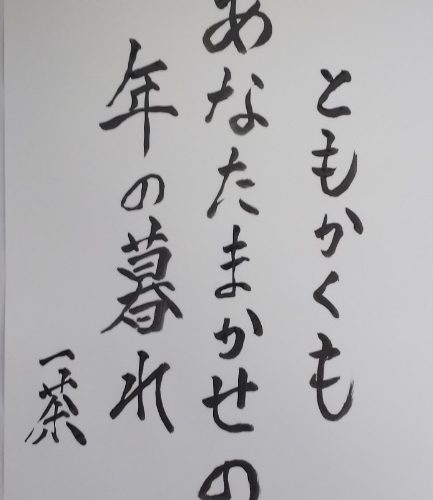 ともかくも
あなたまかせの
年の暮れ
一茶